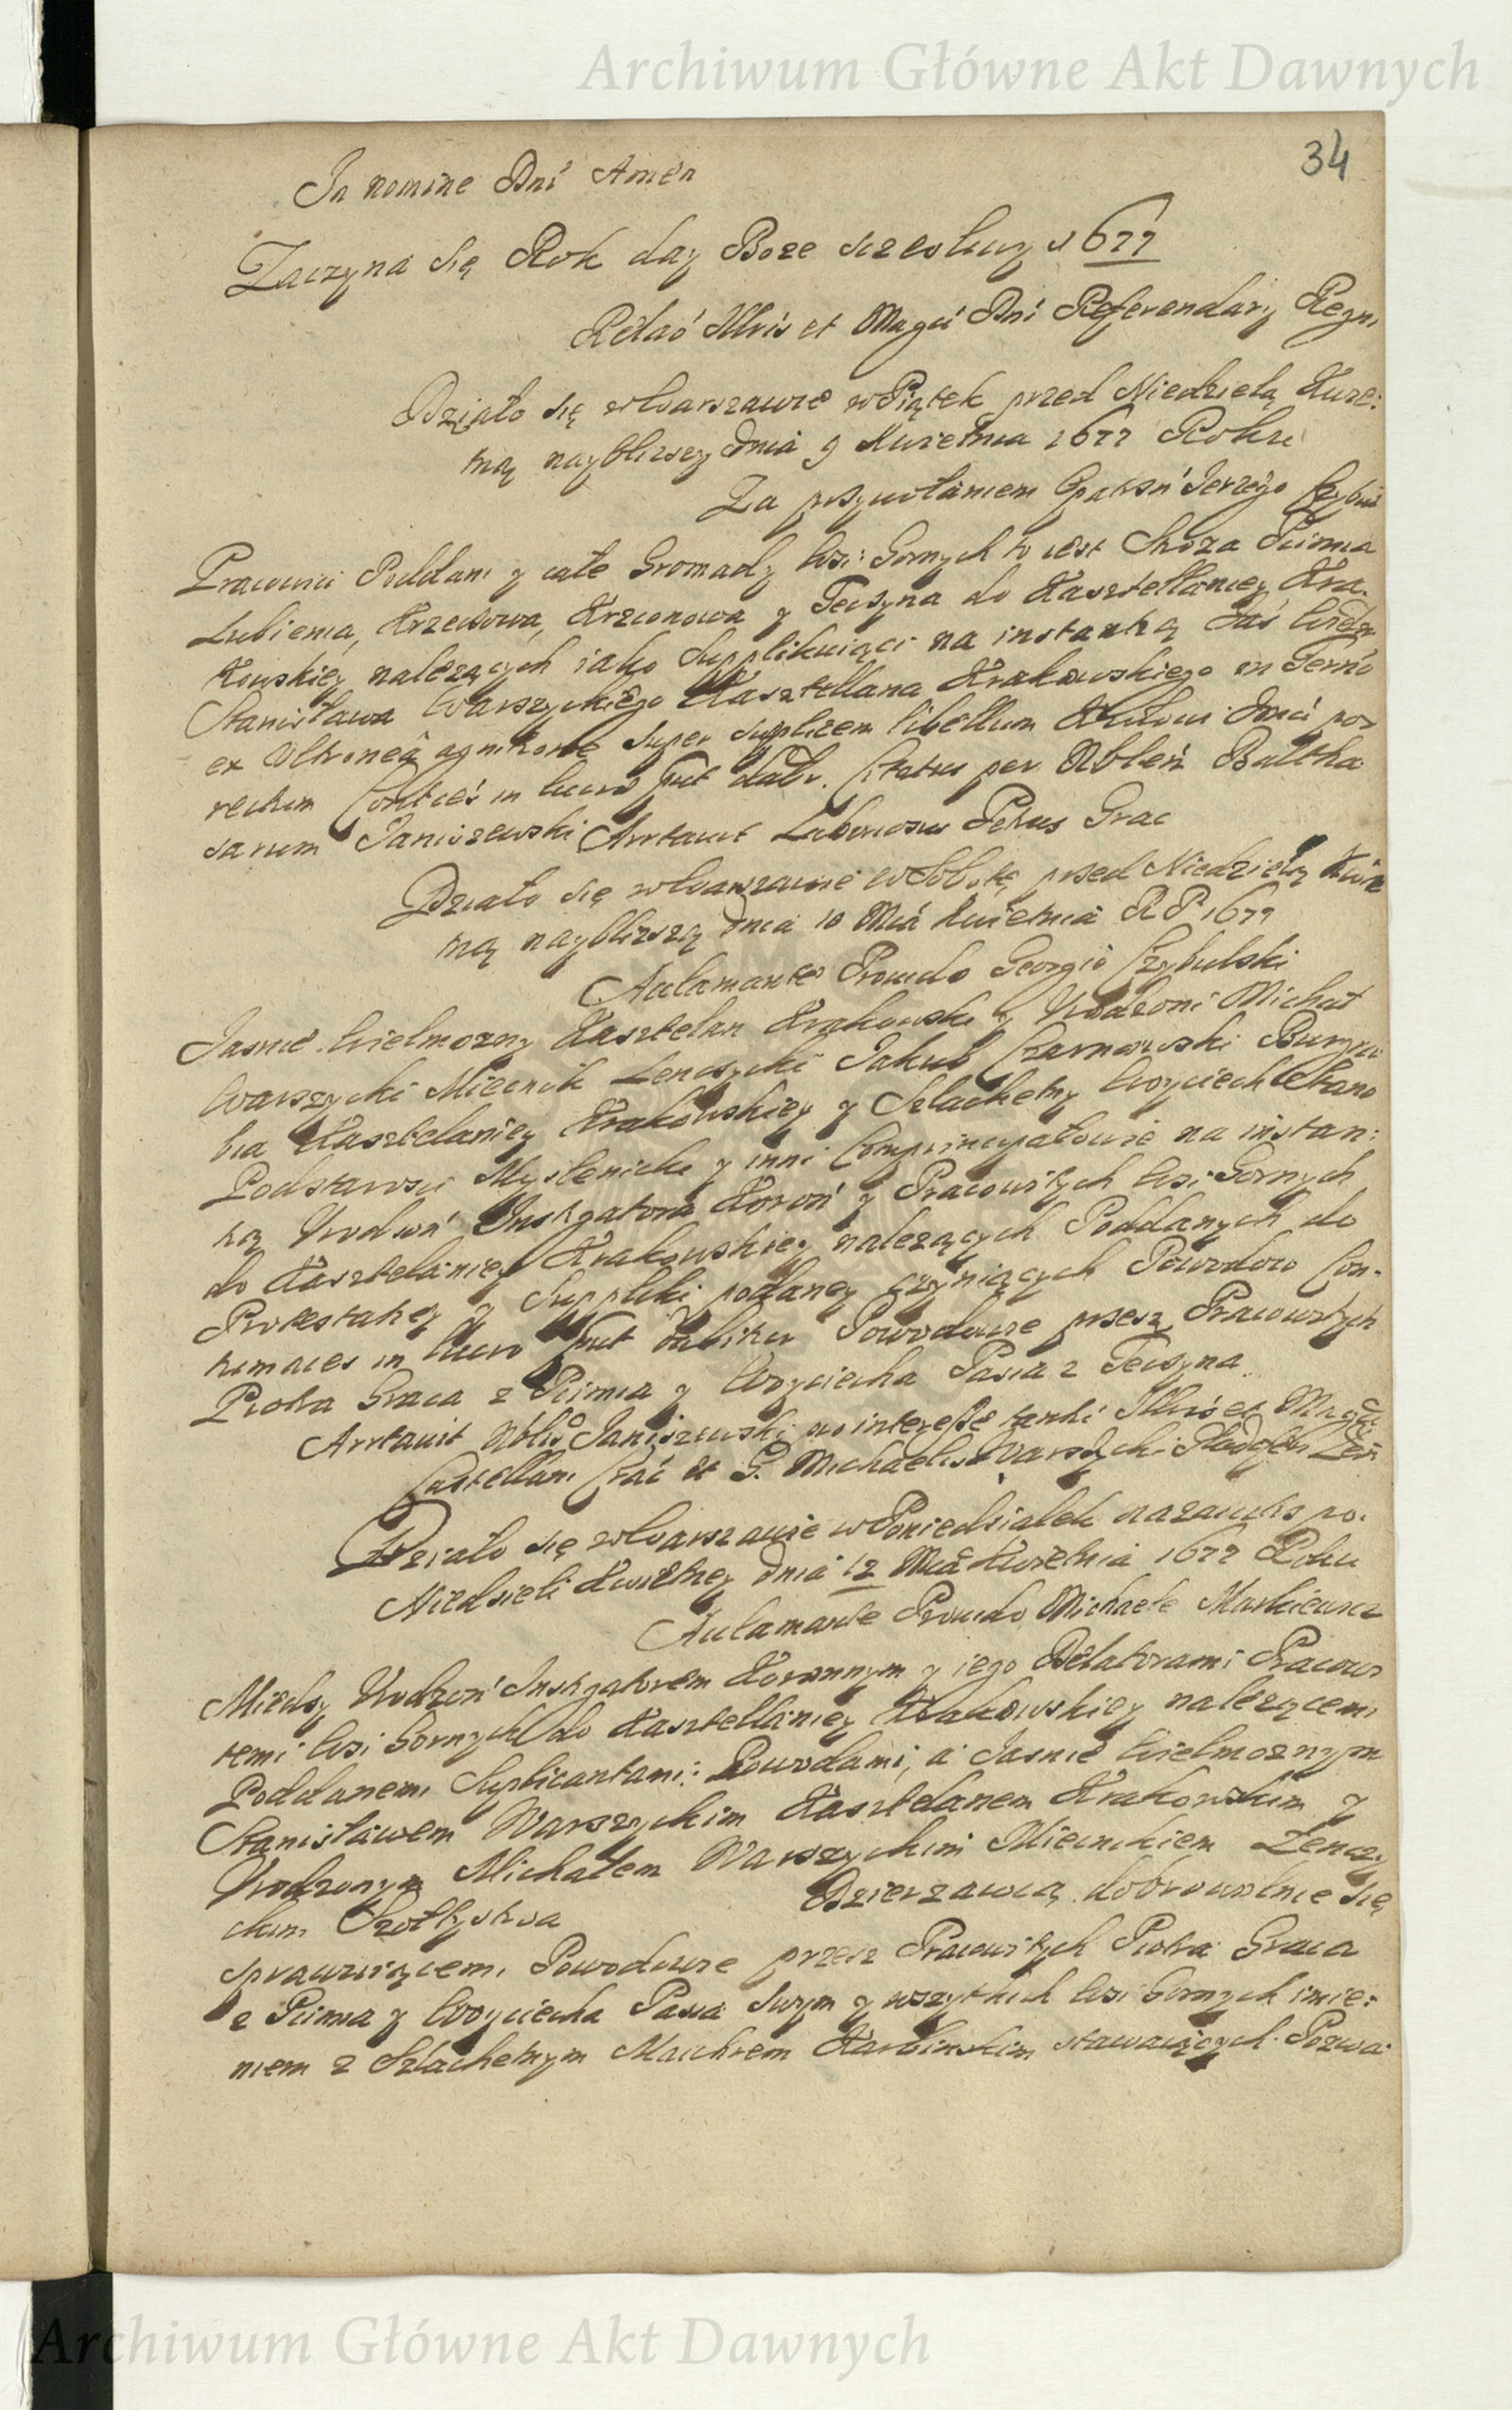 Archiwum Główne Akt Dawnych
34
In nomine Dni Amen
Zaczyna się Rok day Boze sczesliwy 1677
Relaó Illris et Magci Dni Referendarij Regni
Działo się w Warszawie w Piątek przed Niedzielą Kwie:
tną nayblizszy Dnia 9 Kwietnia 1677 Roku
Za przywołaniem Opatrzn Jerzego Czybul
Pracowici Poddani y całe Gromady Wsi: Gornych to iest Skoza Pcimia
Lubienia, Krzeczowa, Krzczonowa y Teczyna do Kasztellaniey Kra-
kowskiey nalezących iako Supplikuiąci na instantią Jaś Wielm
Stanisława Warszyckiego Kasztellana Krakowskiego in Termo
ex Ultronea agnitione super supplicem libellum Krolowi Jmci por
rectum Conties in lucro put dabr. Citatus per Nblem Baltha
sarum Janiszewski Arrtavit Laboriosus Petrus Grac
Działo się w Warszawie w Sobotę przed Niedzielą Kwie
tną nayblizszą Dnia 10 Mca Kwietnia R P 1677
Aclamante Provido Georgio Czybulski
Jasnie Wielmozny Kasztelan Krakowski y Urodzoni Michał
Warszycki Miecznik Lenczycki Jakub Czarnowski Burgra
bia Kasztelaniey Krakowskiey y Szlachetny Woyciech
Podstarosci Myslenicki y inni Comprincypałowie na instan:
tią Urodzon Instygatora Koron y Pracowitych Wsi Gornych
do Kasztelaniey Krakowskiey nalezących Poddanych do
Protestatiey y Suppliki podaney czyniących Powodow Con-
tumaces in lucro put dabitur Powodowie przesz Pracowitych
Piotra Graca z Pcimia y Woyciecha Pasia z Teczyna
Arrtavit Nblis Janiszewski pro interesse tanti Illris et Magci
Castellani Crac et G. Michaelis Warszycki Gladiferi Len
Działo się w Warszawie w Poniedziałek nazaiutrz po.
Niedzieli Kwietney Dnia 12 Mca Kwietnia 1677 Roku
Aclamante Provido Michaele Markiewicz
Miedzy Urodzon Instygatorem Koronnym y iego Delatorami Pracowi
temi Wsi Gornych do Kasztellaniey Krakowskiey nalezącemi
Poddanemi Suplicantami: Powodami, a Jasnie Wielmoznym
Stanisławem Warszyckim Kasztelanem Krakowskim y
Urodzonym Michałem Warszyckim Miecznikiem Lenczy
ckim Szołtystwa Dzierzawcą dobrowolnie się
sprawuiącemi Powodowie przesz Pracowitych Piotra Graca
z Pcimia y Woyciecha Pasia swym y wszytkich Wsi Gornych imie:
niem z Szlachetnym Maickrem Karbinskim stawaiących Pozwa:
Archiwum Główne Akt Dawnych